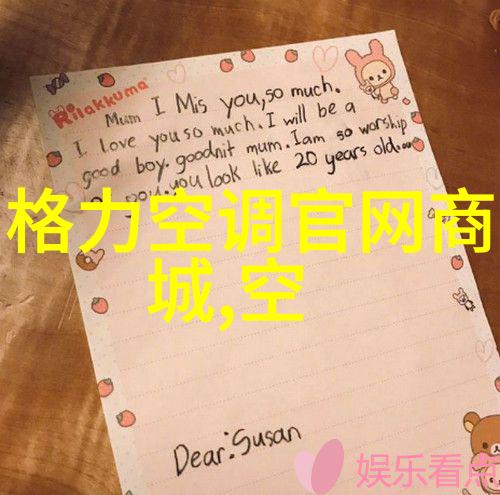 Rilakkuma
Mum I Mis you, so much.
I love you so much. I will be a
good boy. goodnit mum. I am so worship
you. you look like 20 years old.
格力空调官网商
城,空
Dear: Susan
娱乐看点